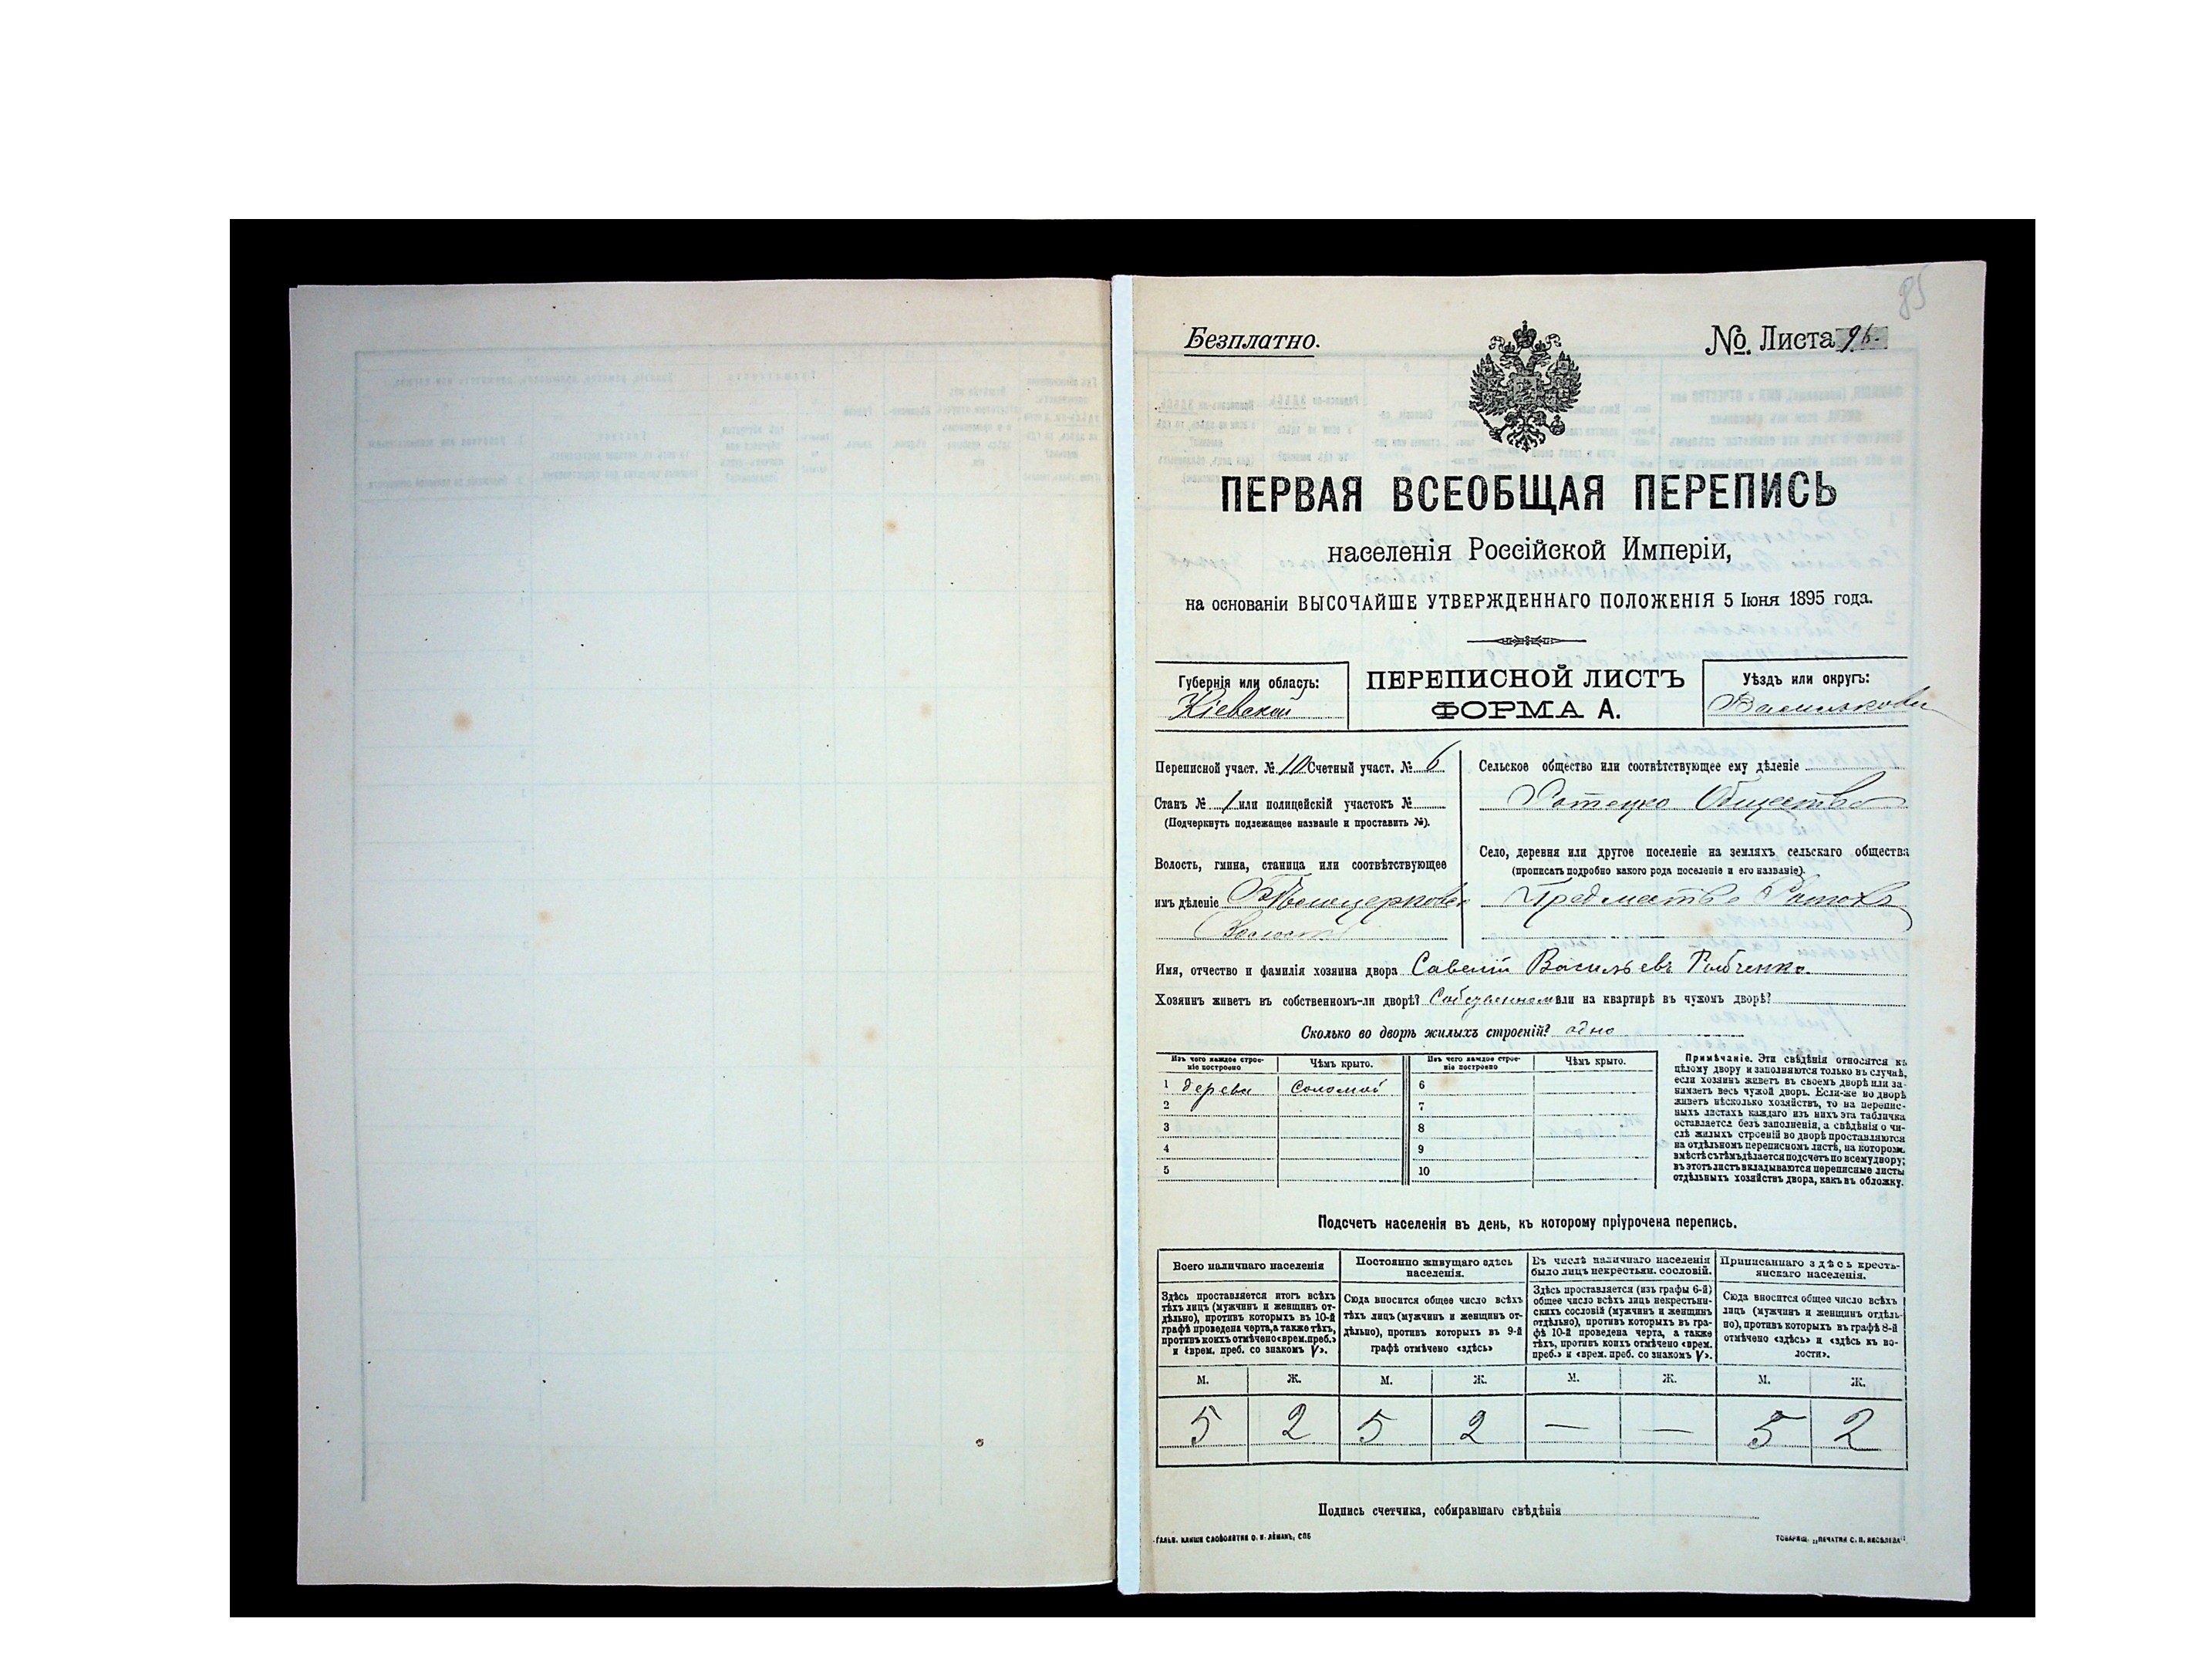 85
Безплатно.
№. Листа 96.
ПЕРВАЯ ВСЕОБЩАЯ ПЕРЕПИСЬ
населенія Россійской Имперіи,
на основаніи ВЫСОЧАЙШЕ УТВЕРЖДЕННАГО ПОЛОЖЕНІЯ 5 Іюня 1895 года.
Губернія или область:
Кіевской
ПЕРЕПИСНОЙ ЛИСТЪ
ФОРМА А.
Уѣздъ или округъ:
Переписной участ. № 10 Счетный участ. № 6
Станъ № 1 или полицейскій участокъ №
(Подчеркнуть подлежащее названіе и проставить №).
Волость, гмина, станица или соотвѣтствующее
имъ дѣленіе
Сельское общество или соотвѣтствующее ему дѣленіе
Общество
Село, деревня или другое поселеніе на земляхъ сельскаго общества
(прописать подробно какого рода поселеніе и его названіе).
Предместье
Имя, отчество и фамилія хозяина двора Савелій Васильевъ
Хозяинъ живетъ въ собственномъ-ли дворѣ? или на квартирѣ въ чужомъ дворѣ?
Сколько во дворѣ жилыхъ строеній? одно
Изъ чего каждое строе-
ніе построено
Чѣмъ крыто.
Изъ чего каждое строе-
ніе построено
Чѣмъ крыто.
1 дерева соломой 6
2 7
3 8
4 9
5 10
Примѣчаніе. Эти свѣдѣнія относятся къ
цѣлому двору и заполняются только въ случаѣ,
если хозяинъ живетъ въ своемъ дворѣ или за-
нимаетъ весь чужой дворъ. Если-же во дворѣ
живетъ нѣсколько хозяйствъ, то на перепис-
ныхъ листахъ каждаго изъ нихъ эта табличка
оставляется безъ заполненія, а свѣдѣнія о чи-
слѣ жилыхъ строеній во дворѣ проставляются
на отдѣльномъ переписномъ листѣ, на которомъ
вмѣстѣ съ тѣмъ дѣлается подсчетъ по всему двору;
въ этотъ листъ вкладываются переписные листы
отдѣльныхъ хозяйствъ двора, какъ въ обложку.
Подсчетъ населенія въ день, къ которому пріурочена перепись.
Всего наличнаго населенія
Здѣсь проставляется итогъ всѣхъ
тѣхъ лицъ (мужчинъ и женщинъ от-
дѣльно), противъ которыхъ въ 10-й
графѣ проведена черта, а также тѣхъ,
противъ коихъ отмѣчено «врем. преб.»
и «врем. преб. со знакомъ V».
Постоянно живущаго здѣсь
населенія.
Сюда вносится общее число всѣхъ
тѣхъ лицъ (мужчинъ и женщинъ от-
дѣльно), противъ которыхъ въ 9-й
графѣ отмѣчено «здѣсь»
Въ числѣ наличнаго населенія
было лицъ некрестьян. сословій.
Здѣсь проставляется (изъ графы 6-й)
общее число всѣхъ лицъ некрестьян-
скихъ сословій (мужчинъ и женщинъ
отдѣльно), противъ которыхъ въ гра-
фѣ 10-й проведена черта, а также
тѣхъ, противъ коихъ отмѣчено «врем.
преб.» и «врем. преб. со знакомъ V».
Приписаннаго здѣсь кресть-
янскаго населенія.
Сюда вносится общее число всѣхъ
лицъ (мужчинъ и женщинъ отдѣль-
но), противъ которыхъ въ графѣ 8-й
отмѣчено «здѣсь» и «здѣсь къ во-
лости».
М. Ж. М. Ж. М. Ж. М. Ж.
5 2 5 2 — — 5 2
Подпись счетчика, собиравшаго свѣдѣнія